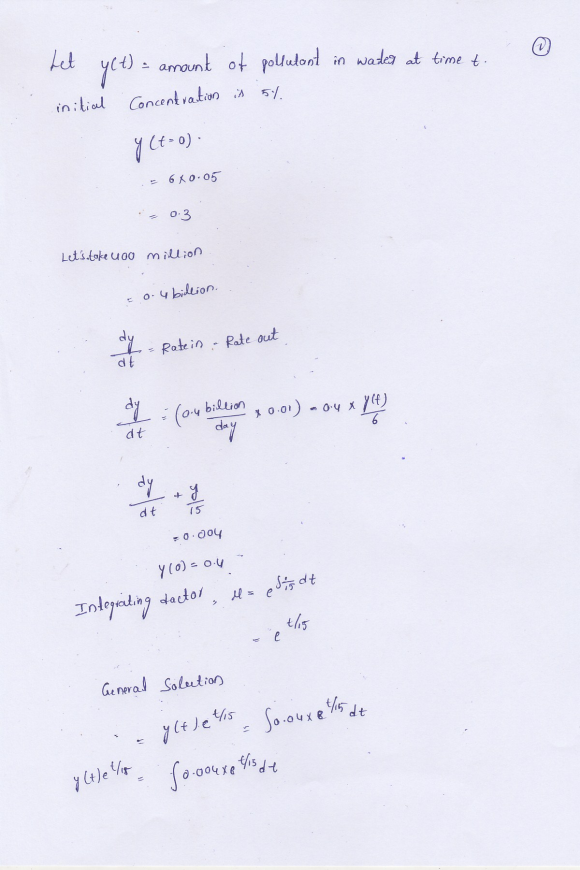 ①
Let y(t) = amount of pollutant in water at time t.
initial Concentration is 5%.
y(t=0).
= 6x0.05
= 0.3
Let's take 400 million
= 0.4 billion.
dy/dt = Rate in - Rate out
dy/dt = (0.4 billion/day x 0.01) - 0.4 x y(t)/6
dy/dt + y/15
= 0.004
y(0) = 0.4
Integrating factor, μ = e^∫1/15 dt
= e^t/15
General Solution
= y(t)e^t/15 = ∫0.04xe^t/15 dt
y(t)e^t/15 = ∫0.004xe^t/15 dt